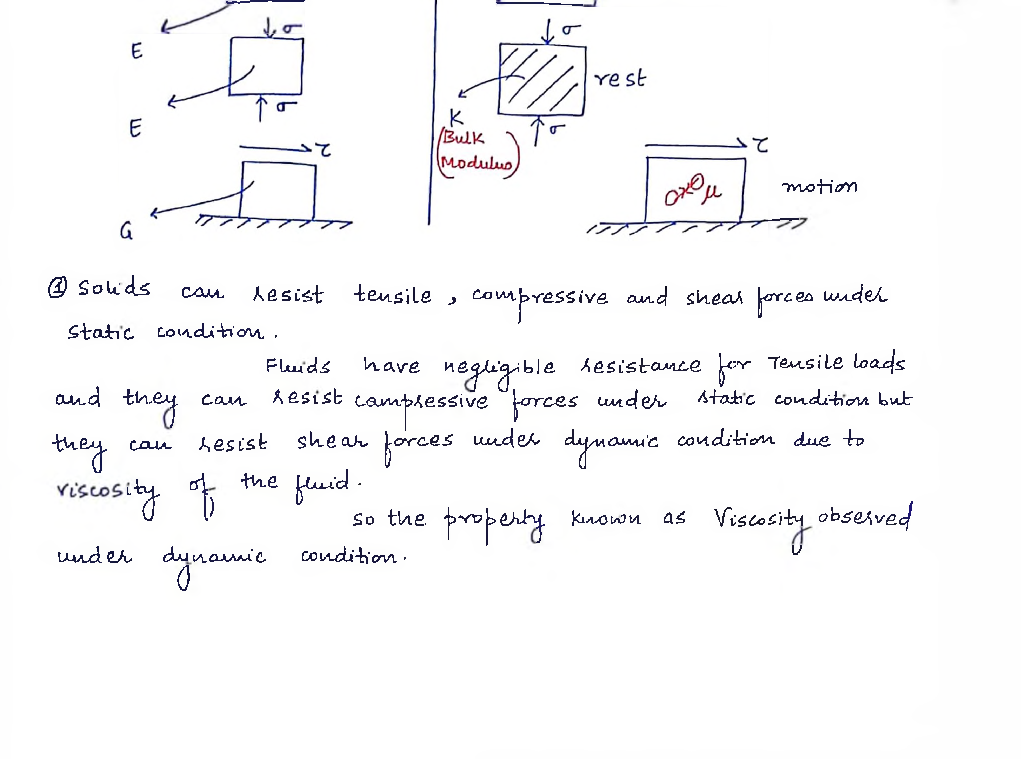 E
σ
σ
E
τ
G
σ
rest
K
(Bulk
Modulus)
σ
τ
μ
motion
① Solids can resist tensile , compressive and shear forces under
Static condition .
Fluids have negligible resistance for Tensile loads
and they can resist compressive forces under static condition but
they can resist shear forces under dynamic condition due to
viscosity of the fluid .
so the property known as Viscosity observed
under dynamic condition .